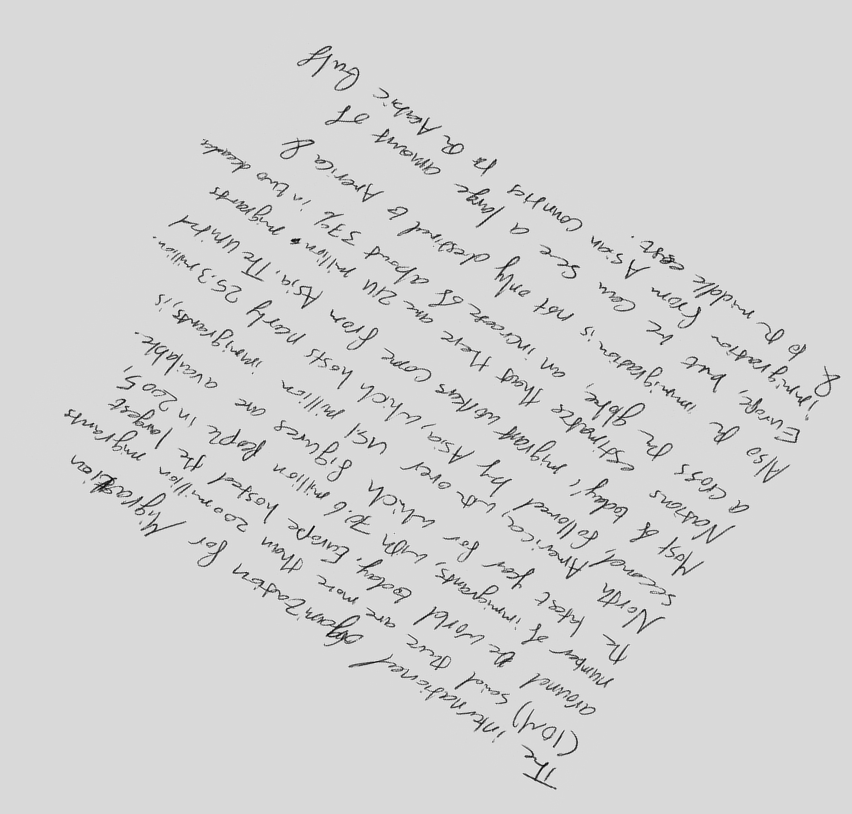 The international organization for Migration
(IOM) said there are more than 200 million migrants
around the world today, Europe hosted the largest
number of immigrants, with 70.6 million people in 2005,
the latest year for which figures are available.
North America, with over 45.1 million immigrants, is
second, followed by Asia, which hosts nearly 25.3 million.
Most of today's migrant workers come from Asia. The United
Nations estimates that there are 214 million migrants
across the globe, an increase of about 37% in two decades
Also the immigration is not only destined to America &
Europe, but we can see a large amount of
immigration from Asian countries to the Arabic Gulf
& to the middle east.